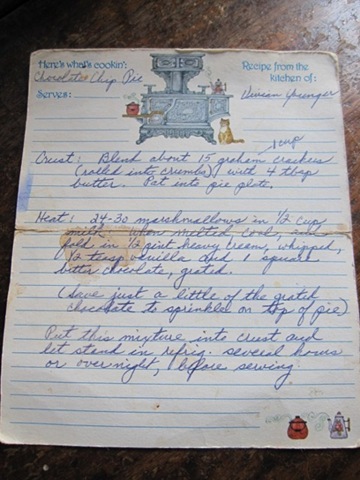 Here's what's cookin':
Recipe from the
Chocolate Chip Pie
kitchen of:
Serves:
Vivian Younger
1 cup
Crust: Blend about 15 graham crackers
(rolled into crumbs) with 4 tbsp
butter. Pat into pie plate.
Heat: 24-30 marshmallows in 1/2 cup
milk. When melted, cool, and
fold in 1/2 pint heavy cream, whipped,
1/2 teasp vanilla and 1 square
bitter chocolate, grated.
(Save just a little of the grated
chocolate to sprinkle on top of pie)
Put this mixture into crust and
let stand in refrig. several hours
or overnight, before serving.